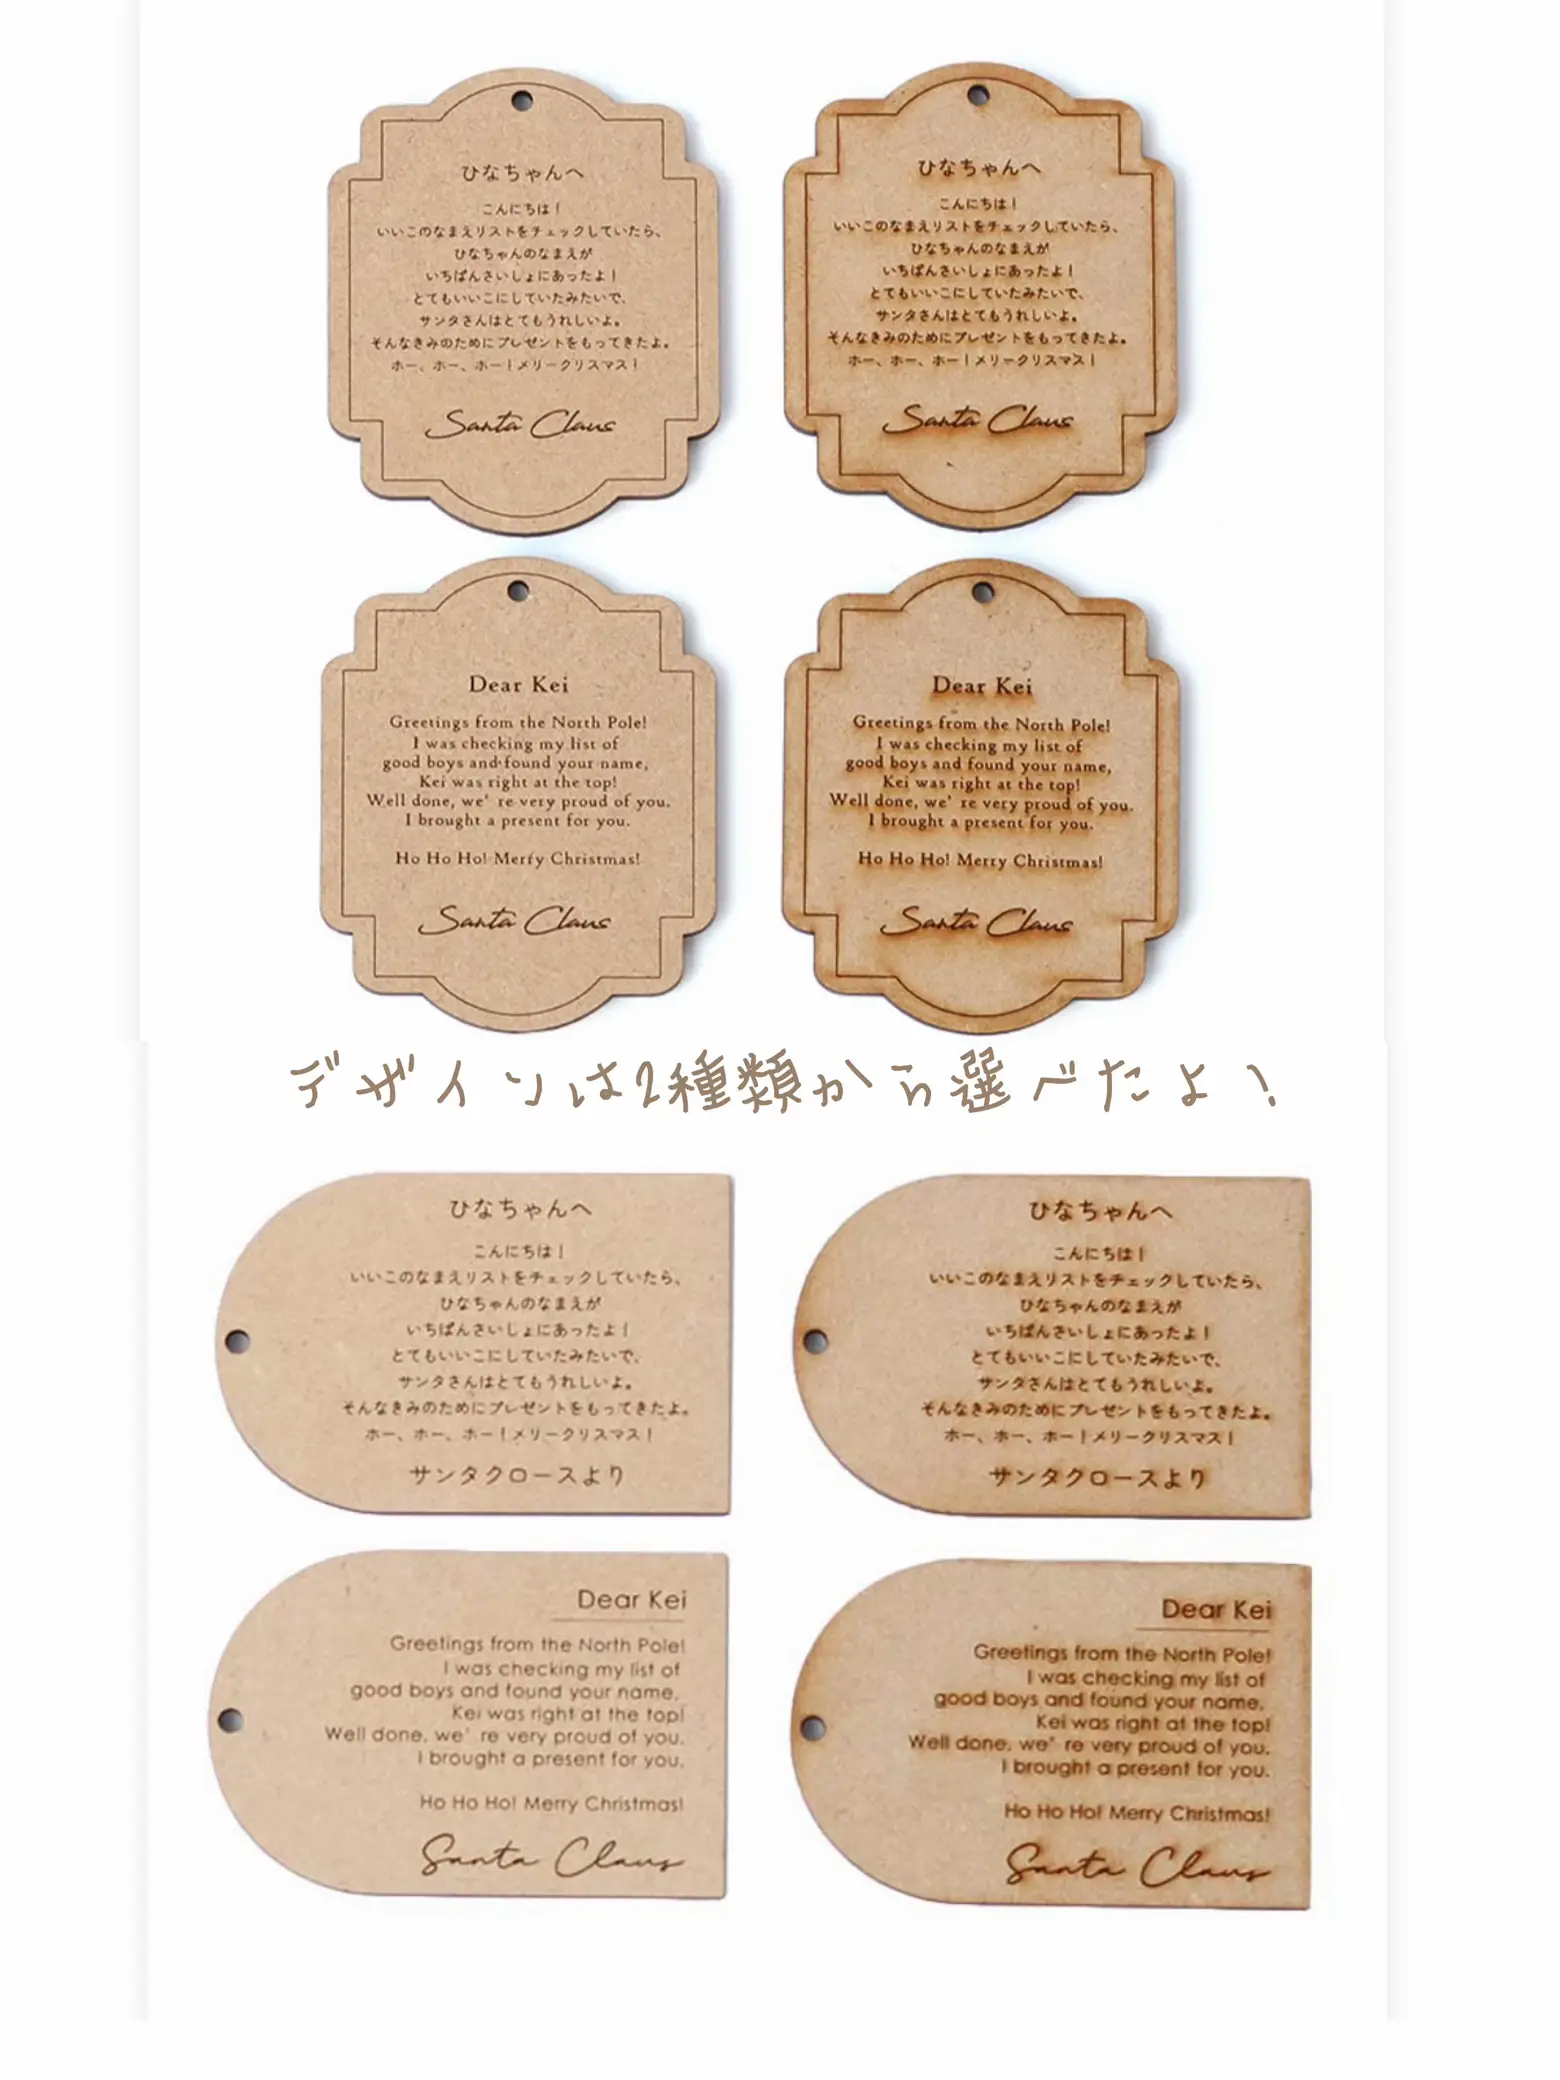 ひなちゃんへ
こんにちは！
いいこのなまえリストをチェックしていたら、
ひなちゃんのなまえが
いちばんさいしょにあったよ！
とてもいいこにしていたみたいで、
サンタさんはとてもうれしいよ。
そんなきみのためにプレゼントをもってきたよ。
ホー、ホー、ホー！メリークリスマス！
Santa Claus
ひなちゃんへ
こんにちは！
いいこのなまえリストをチェックしていたら、
ひなちゃんのなまえが
いちばんさいしょにあったよ！
とてもいいこにしていたみたいで、
サンタさんはとてもうれしいよ。
そんなきみのためにプレゼントをもってきたよ。
ホー、ホー、ホー！メリークリスマス！
Santa Claus
Dear Kei
Greetings from the North Pole!
I was checking my list of
good boys and found your name,
Kei was right at the top!
Well done, we’ re very proud of you.
I brought a present for you.
Ho Ho Ho! Merry Christmas!
Santa Claus
Dear Kei
Greetings from the North Pole!
I was checking my list of
good boys and found your name,
Kei was right at the top!
Well done, we’ re very proud of you.
I brought a present for you.
Ho Ho Ho! Merry Christmas!
Santa Claus
デザインは2種類から選べたよ！
ひなちゃんへ
こんにちは！
いいこのなまえリストをチェックしていたら、
ひなちゃんのなまえが
いちばんさいしょにあったよ！
とてもいいこにしていたみたいで、
サンタさんはとてもうれしいよ。
そんなきみのためにプレゼントをもってきたよ。
ホー、ホー、ホー！メリークリスマス！
サンタクロースより
ひなちゃんへ
こんにちは！
いいこのなまえリストをチェックしていたら、
ひなちゃんのなまえが
いちばんさいしょにあったよ！
とてもいいこにしていたみたいで、
サンタさんはとてもうれしいよ。
そんなきみのためにプレゼントをもってきたよ。
ホー、ホー、ホー！メリークリスマス！
サンタクロースより
Dear Kei
Greetings from the North Pole!
I was checking my list of
good boys and found your name,
Kei was right at the top!
Well done, we’ re very proud of you.
I brought a present for you.
Ho Ho Ho! Merry Christmas!
Santa Claus
Dear Kei
Greetings from the North Pole!
I was checking my list of
good boys and found your name,
Kei was right at the top!
Well done, we’ re very proud of you.
I brought a present for you.
Ho Ho Ho! Merry Christmas!
Santa Claus